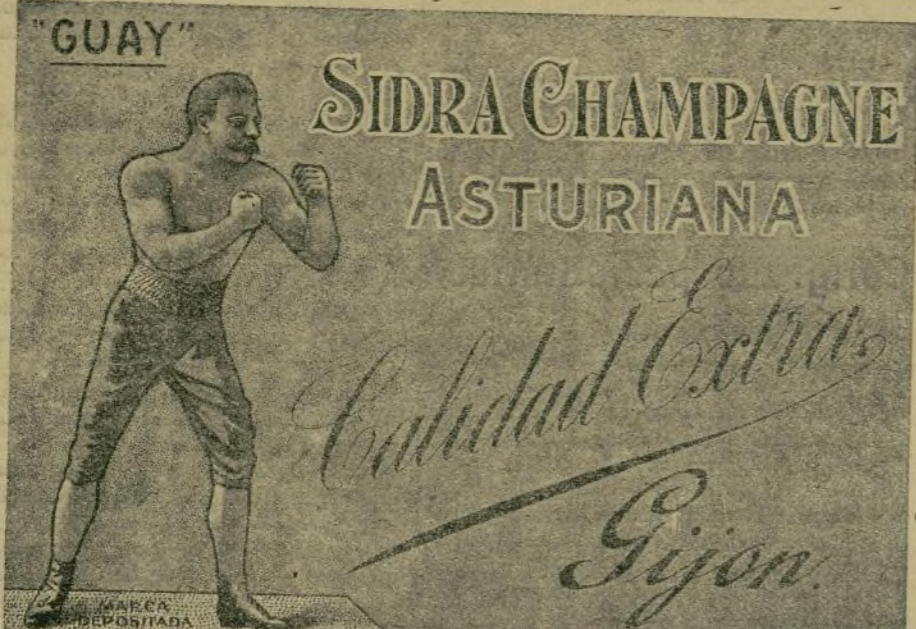 "GUAY"
SIDRA CHAMPAGNE
ASTURIANA
Calidad Extra
Gijon.
MARCA
DEPOSITADA